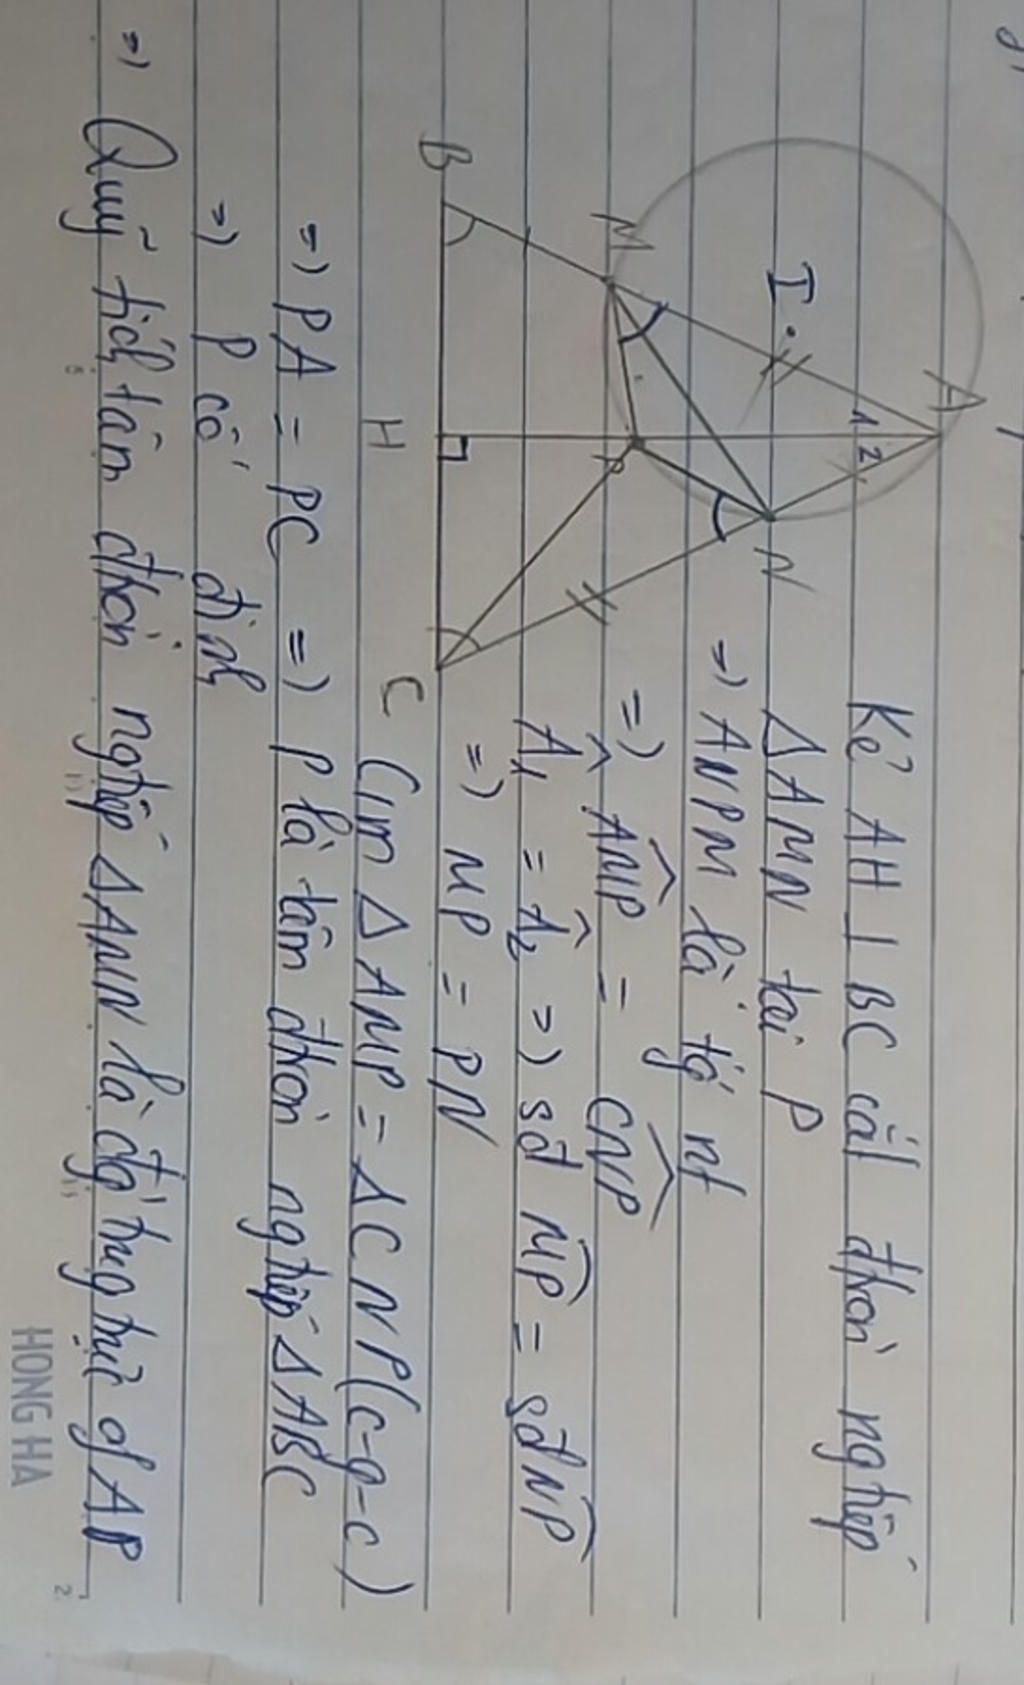 A
1 2
I
M
N
P
B
H
C
Kẻ AH ⊥ BC cắt đtròn ngtiếp
ΔAMN tại P
=) ANPM là tg nt
=) ÂMP = CNP
Â1 = Â2 =) sđ MP = sđ NP
=) MP = PN
C/m Δ AMP = ΔCNP (c-g-c)
=) PA = PC =) P là tâm đtròn ngtiếp ΔABC
=) P cố định
=) Quỹ tích tâm đtròn ngtiếp ΔAMN là đg trung trực of AP
HONG HA